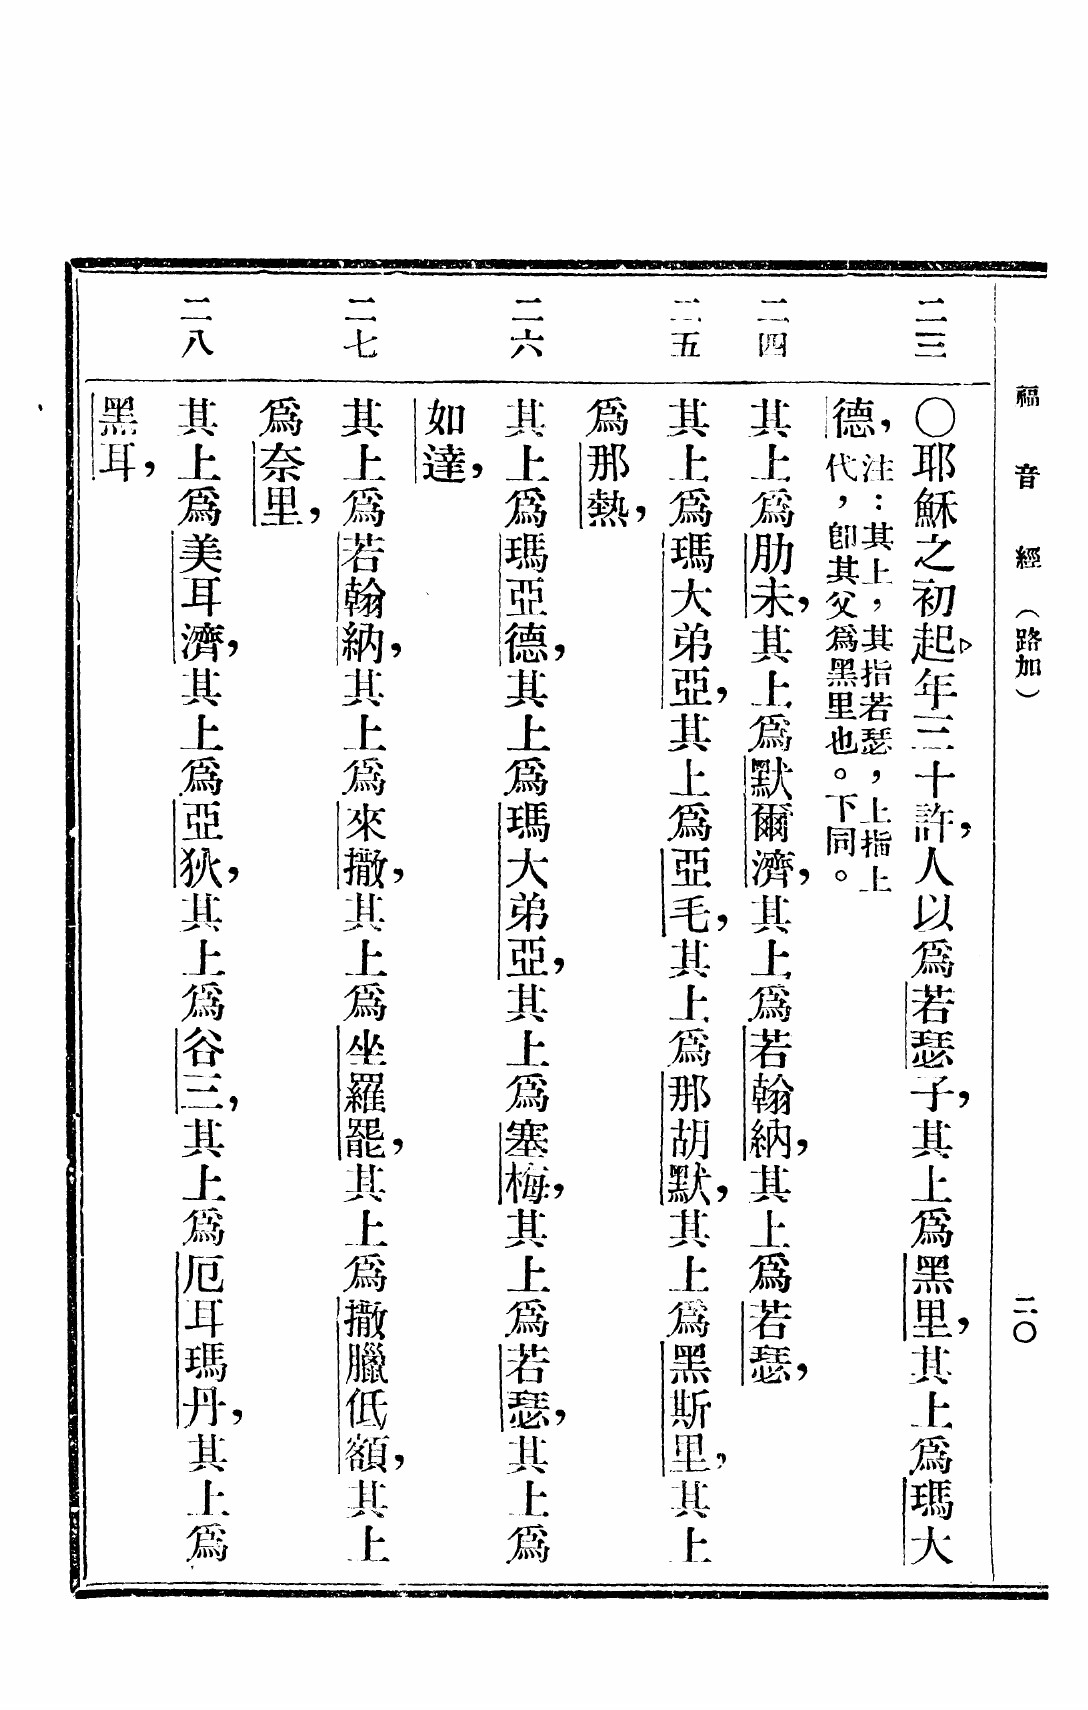 福音經（路加） 二〇
二三 〇耶穌之初起年三十許，人以爲若瑟子，其上爲黑里，其上爲瑪大
德，注：其上，其指若瑟，上指上
代，卽其父爲黑里也。下同。
二四 其上爲肋未，其上爲默爾濟，其上爲若翰納，其上爲若瑟，
二五 其上爲瑪大弟亞，其上爲亞毛，其上爲那胡默，其上爲黑斯里，其上
爲那熱，
二六 其上爲瑪亞德，其上爲瑪大弟亞，其上爲塞梅，其上爲若瑟，其上爲
如達，
二七 其上爲若翰納，其上爲來撒，其上爲坐羅罷，其上爲撒臘低額，其上
爲奈里，
二八 其上爲美耳濟，其上爲亞狄，其上爲谷三，其上爲厄耳瑪丹，其上爲
黑耳，